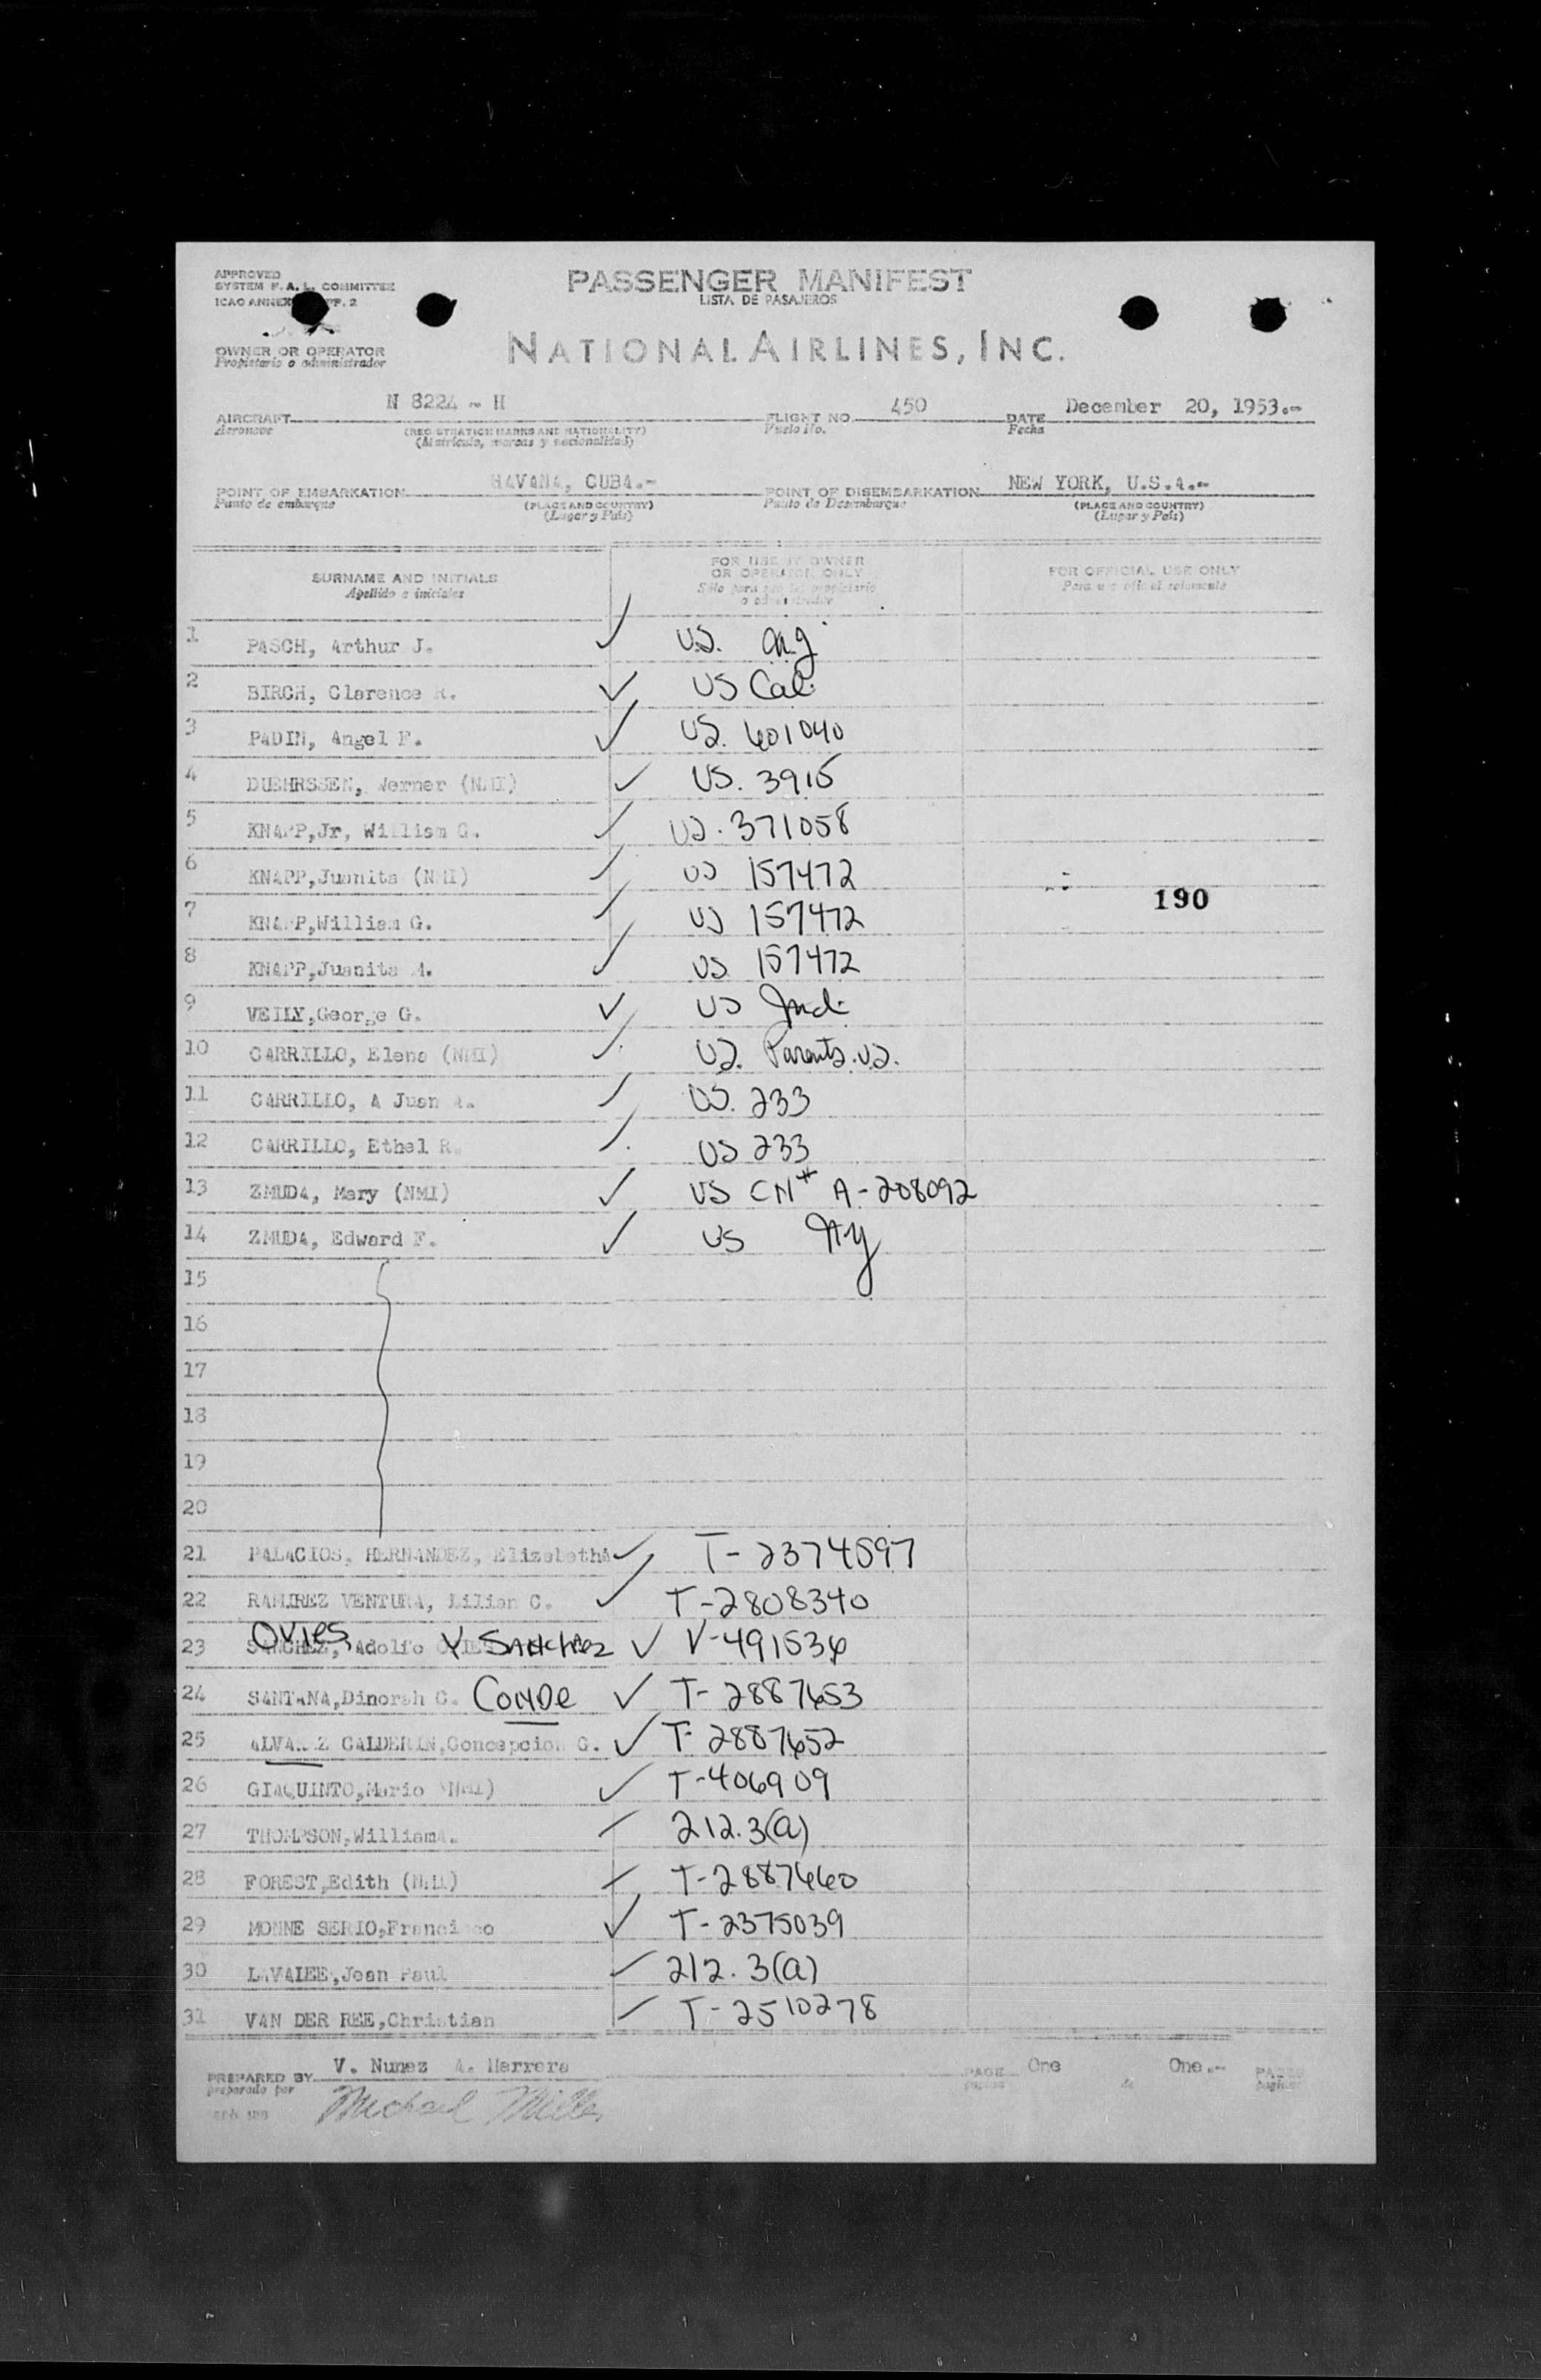 APPROVED
SYSTEM F. A. L. COMMITTEE
ICAO ANNEX 2
PASSENGER MANIFEST
LISTA DE PASAJEROS
OWNER OR OPERATOR
Propietario o administrador
NATIONAL AIRLINES, INC.
AIRCRAFT N 8224 - H FLIGHT NO. 450 DATE December 20, 1953.-
Aeronave (REGISTRATION MARKS AND NATIONALITY) Vuelo No. Fecha
(Matrícula, marcas y nacionalidad)
POINT OF EMBARKATION HAVANA, CUBA.- POINT OF DISEMBARKATION NEW YORK, U.S.A.-
Punto de embarque (PLACE AND COUNTRY) Punto de Desembarque (PLACE AND COUNTRY)
(Lugar y País) (Lugar y País)
SURNAME AND INITIALS FOR USE BY OWNER OR OPERATOR ONLY FOR OFFICIAL USE ONLY
Apellido e iniciales Sólo para uso del propietario o administrador Para uso oficial solamente
1 PASCH, Arthur J. ✓ U.S.
2 BIRCH, Clarence R. ✓ US Cal.
3 PADIN, Angel F. ✓ US. 601040
4 DUEHRSSEN, Werner (NMI) ✓ US. 3915
5 KNAPP,Jr, William G. ✓ US. 371058
6 KNAPP,Juanita (NMI) ✓ US 157472
7 KNAPP,William G. ✓ US 157472
190
8 KNAPP,Juanita M. ✓ US 157472
9 VEILY,George G. ✓ US Ind.
10 CARRILLO, Elena (NMI) ✓ US. Parents U.S.
11 CARRILLO, A Juan A. ✓ US. 233
12 CARRILLO, Ethel R. ✓ US 233
13 ZMUDA, Mary (NMI) ✓ US CN# A-208092
14 ZMUDA, Edward F. ✓ US NY
15
16
17
18
19
20
21 PALACIOS, HERNANDEZ, Elizabeth ✓ T-2374597
22 RAMIREZ VENTURA, Lilian C. ✓ T-2808340
OVIES
23 SANCHEZ, Adolfo OVIES Y SANCHEZ ✓ V-491536
24 SANTANA,Dinorah C. CONDE ✓ T-2887653
25 ALVAREZ CALDERIN,Concepcion G. ✓ T-2887652
26 GIAQUINTO,Mario (NMI) ✓ T-406909
27 THOMPSON,William A. 212.3(a)
28 FOREST,Edith (NMI) T-2887660
29 MONNE SERIO,Francisco ✓ T-2375039
30 LAVALEE,Jean Paul 212.3(a)
31 VAN DER REE,Christian T-2510278
PREPARED BY V. Nunez A. Herrera PAGE One One.- PAGES
preparado por página de páginas
Michael Miller